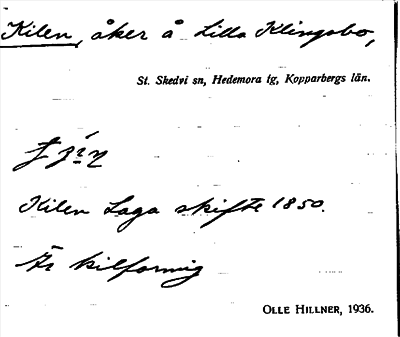 Kilen, åker å Lilla Klingsbo,
St. Skedvi sn, Hedemora tg, Kopparbergs län.
Kilen Laga skifte 1850.
Är kilformig
OLLE HILLNER, 1936.